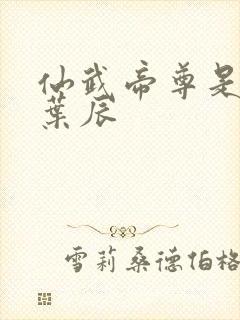 仙武帝尊是
葉辰
雪莉桑德伯格